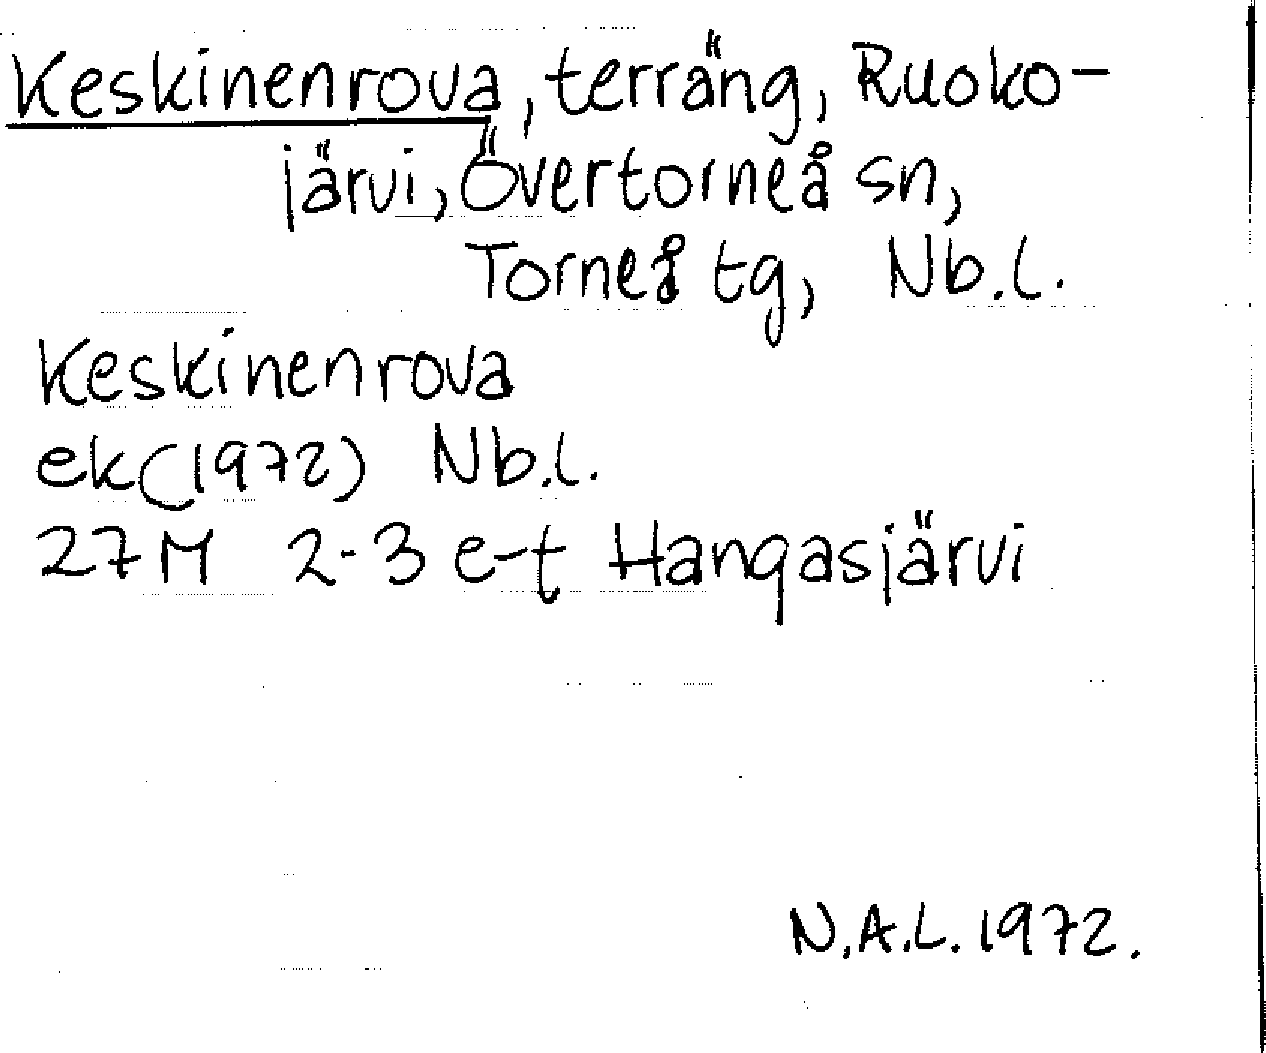 Keskinenrova, terräng, Ruoko-
järvi, Övertorneå sn,
Torneå tg, Nb.l.
Keskinenrova
ek(1972) Nb.l.
27M 2-3 e-t Hangasjärvi
N.A.L. 1972.